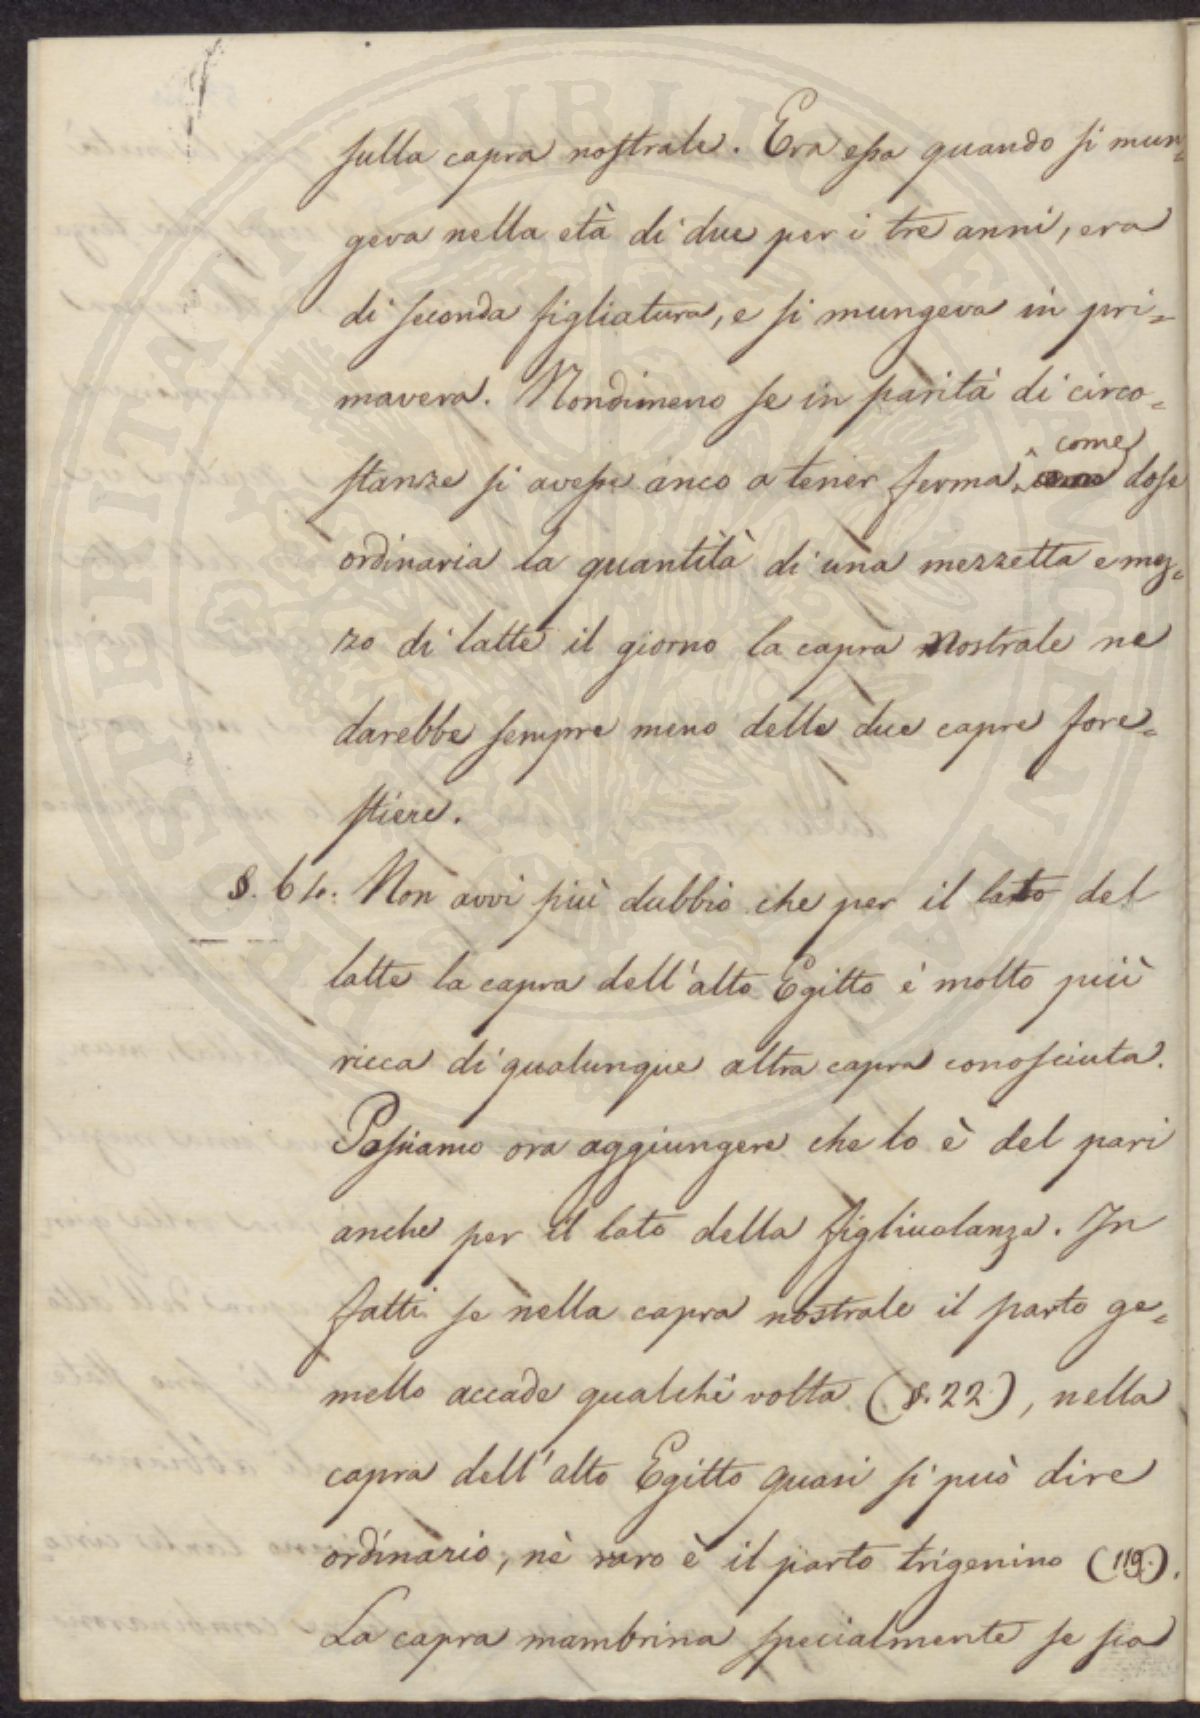 sulla capra nostrale. Era essa quando si mun=
geva nella età di due per i tre anni, era
di seconda figliatura, e si mungeva in pri=
mavera. Nondimeno se in parità di circo=
stanze si avesse anco a tener ferma come dose
ordinaria la quantità di una mezzetta e mez=
zo di latte il giorno la capra nostrale ne
darebbe sempre meno delle due capre fore=
stiere.
§. 64. Non avvi più dubbio che per il lato del
latte la capra dell'alto Egitto è molto più
ricca di qualunque altra capra conosciuta.
Possiamo ora aggiungere che lo è del pari
anche per il lato della figliuolanza. In
fatti se nella capra nostrale il parto ge=
mello accade qualche volta (§. 22), nella
capra dell'alto Egitto quasi si può dire
ordinario, nè raro è il parto trigemino (119).
La capra mambrina specialmente se sia
PROSPERITATI PUBLICAE AUGENDAE